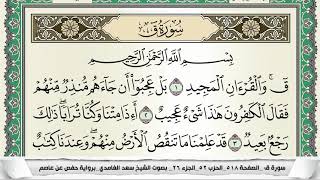 سورة ق
بسم الله الرحمن الرحيم
ق ۚ والقرءان المجيد ١ بل عجبوا أن جاءهم منذر منهم
فقال الكفرون هذا شيء عجيب ٢ أءذا متنا وكنا ترابا ۖ ذلك
رجع بعيد ٣ قد علمنا ما تنقص الأرض منهم ۖ وعندنا كتب
سورة ق _ الصفحة ٥١٨ _ الحزب ٥٢ _ الجزء ٢٦ _ بصوت الشيخ سعد الغامدي _ برواية حفص عن عاصم